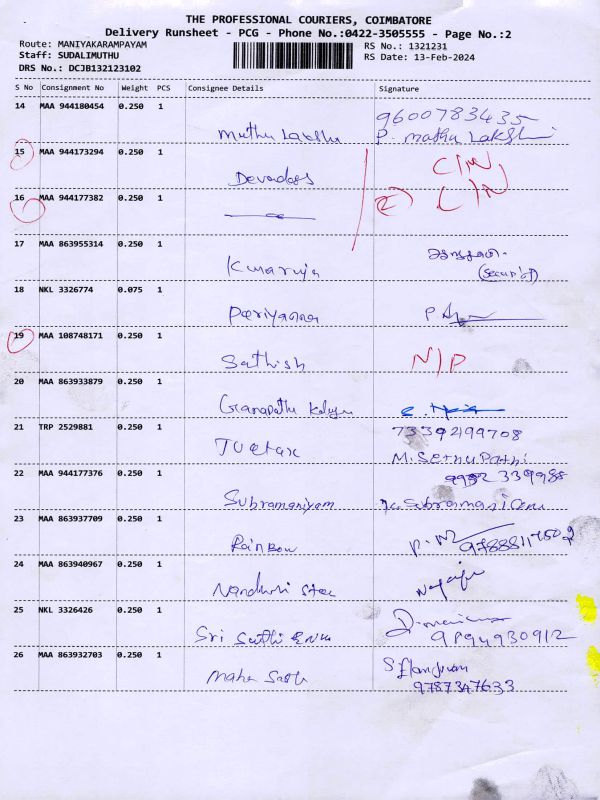 THE PROFESSIONAL COURIERS, COIMBATORE
Delivery Runsheet - PCG - Phone No.:0422-3505555 - Page No.:2
Route: MANIYAKARAMPAYAM
Staff: SUDALIMUTHU
DRS No.: DCJB132123102
RS No.: 1321231
RS Date: 13-Feb-2024
S No Consignment No Weight PCS Consignee Details Signature
14 MAA 944180454 0.250 1
Muthu Lakshmi 9600783435
P. Mathu Lakshmi
15 MAA 944173294 0.250 1
Devadass C/N
16 MAA 944177382 0.250 1
C/N
17 MAA 863955314 0.250 1
(Security)
18 NKL 3326774 0.075 1
Periyanna
19 MAA 108748171 0.250 1
Sathish N/P
20 MAA 863933879 0.250 1
Ganapathi
21 TRP 2529881 0.250 1
7339299708
M. Sethu Pathi
22 MAA 944177376 0.250 1
9952 339988
Subramaniyam K. Subramaniam
23 MAA 863937709 0.250 1
Rainbow
24 MAA 863940967 0.250 1
25 NKL 3326426 0.250 1
Sri Sakthi
9894930912
26 MAA 863932703 0.250 1
Maha Sakthi
9787347633